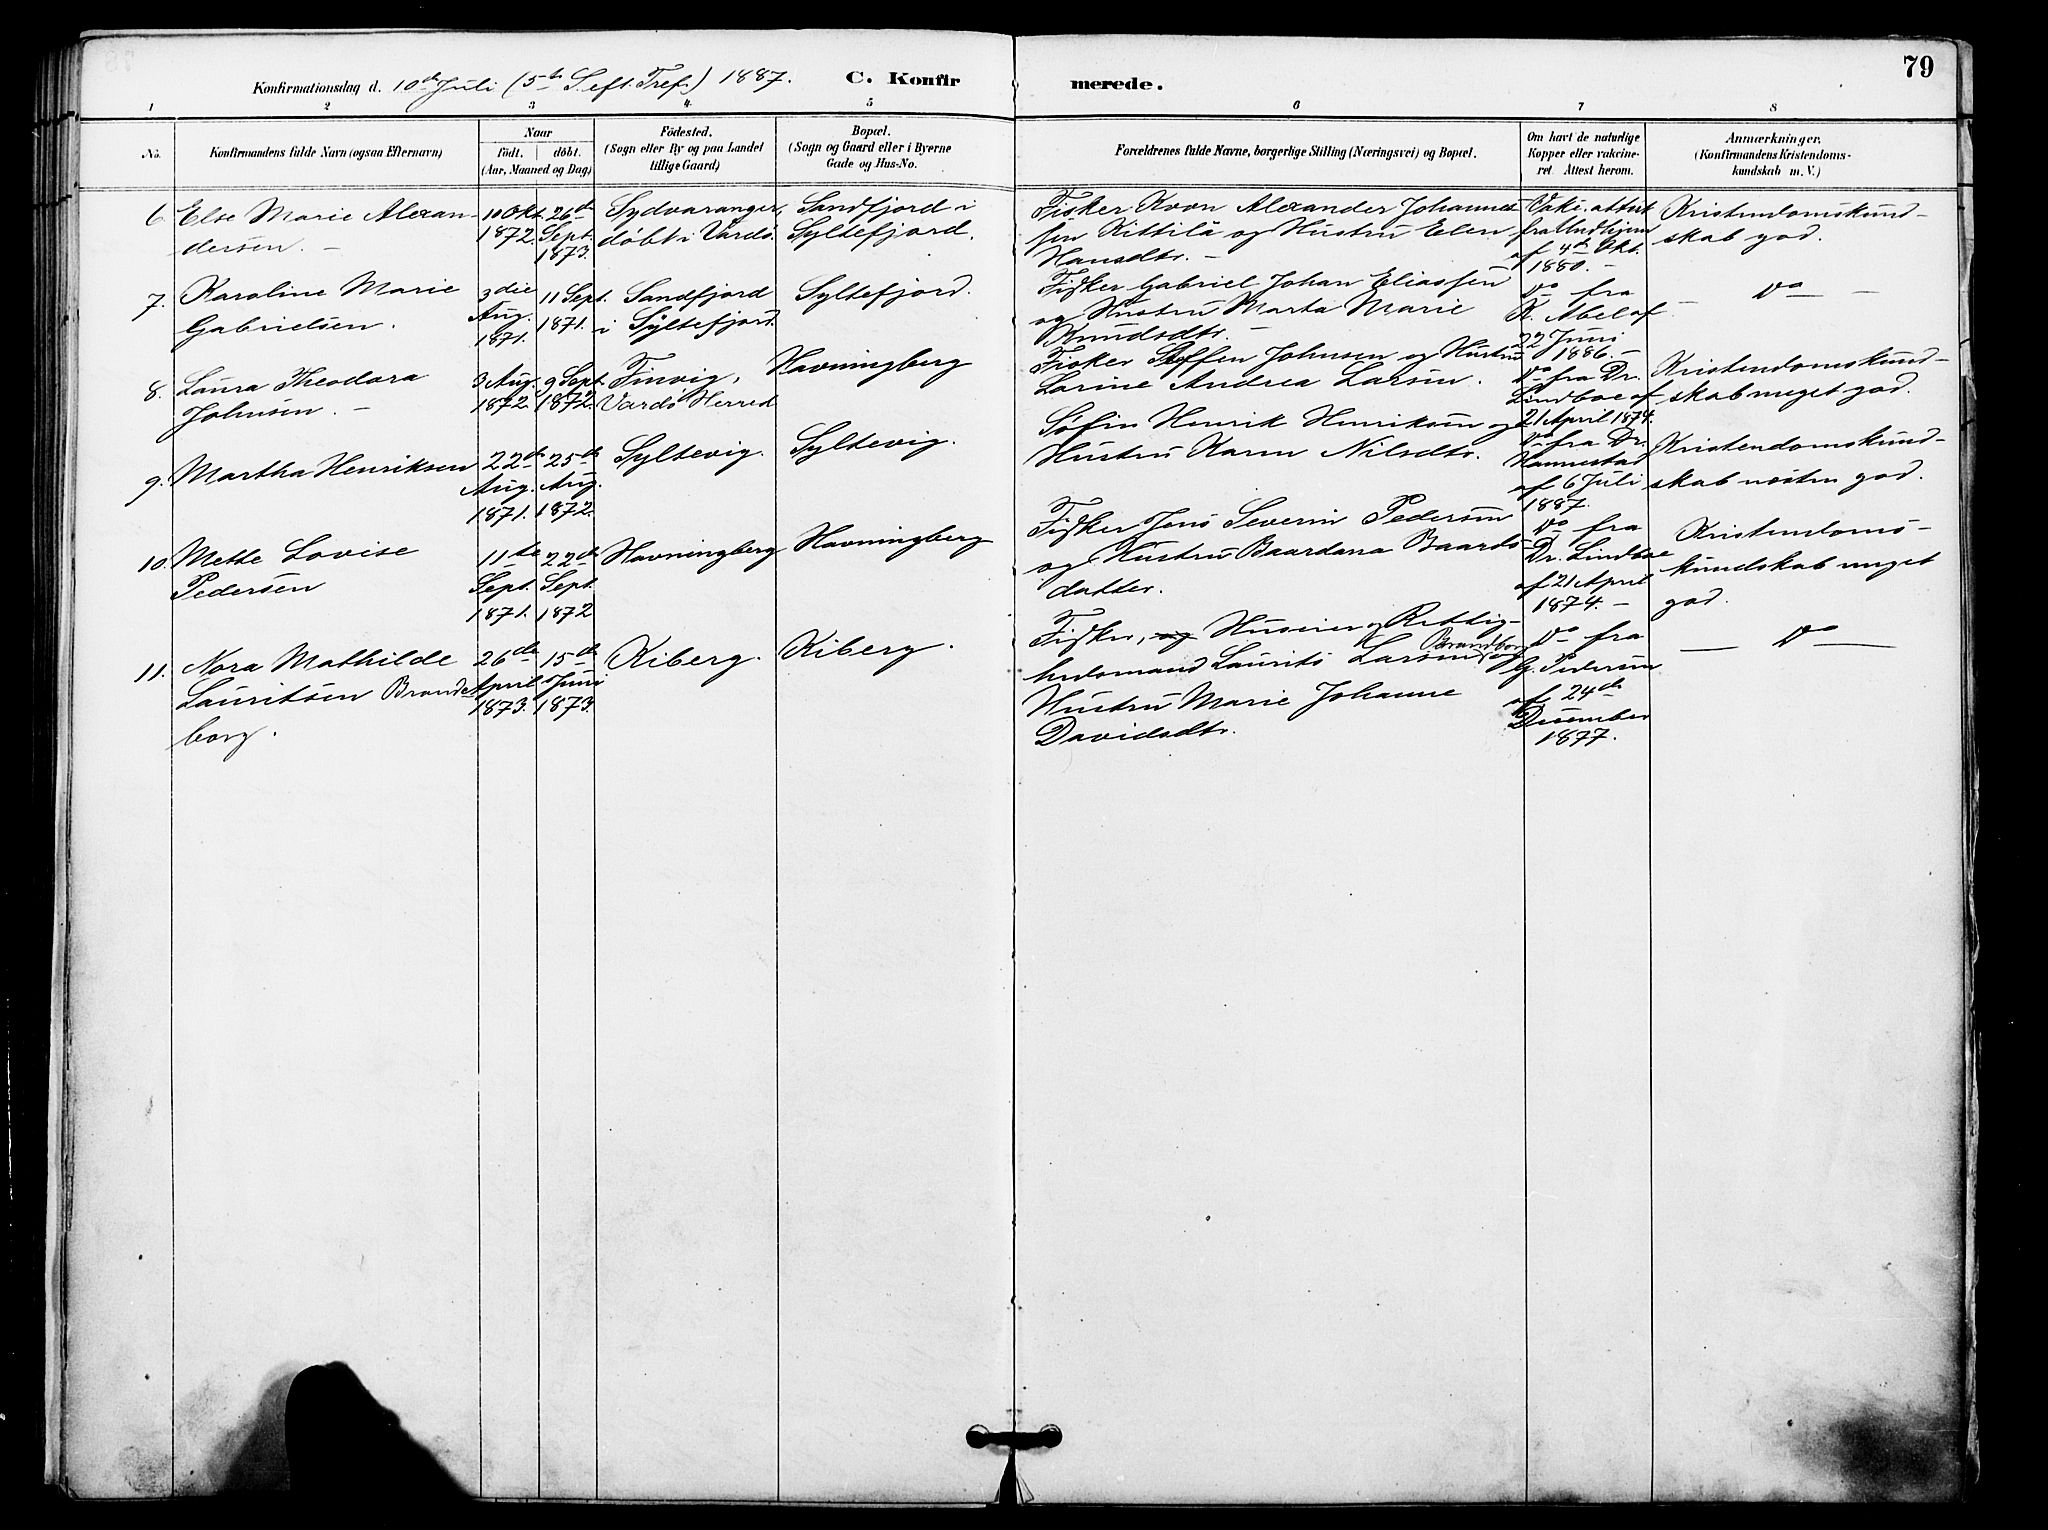 79
Konfirmationsdag d. 10de Juli (5te S. eft. Tref.) 1887. C. Konfir merede.
1 2 3 4 5 6 7 8
No. Konfirmandens fulde Navn (ogsaa Efternavn)
Naar
födt. döbt.
(Aar, Maaned og Dag)
Födested.
(Sogn eller By og paa Landet
tillige Gaard)
Bopæl.
(Sogn og Gaard eller i Byerne
Gade og Hus-No.
Forældrenes fulde Navne, borgerlige Stilling (Næringsvei) og Bopæl.
Om havt de naturlige
Kopper eller vakcine-
ret. Attest herom.
Anmærkninger.
(Konfirmandens Kristendoms-
kundskab m. V.)
6. Else Marie Alexan-
dersen. -
10 Okt.
1872.
26de
Sept.
1873.
Sydvaranger,
döbt i Vardö.
Sandfjord i
Syltefjord.
Fisker Kvæn Alexander Johannes-
sen Kittilä og Hustru Elen
Hansdtr. -
Vakc. attest
fra
af 4de Okt.
1880. -
Kristendomskund-
skab god.
7. Karoline Marie
Gabrielsen.
3die
Aug.
1871.
11 Sept.
1871.
Sandfjord
i Syltefjord.
Syltefjord.
Fisker Gabriel Johan Eliassen
og Hustru Marta Marie
Knudsdtr. -
Do fra
K. Abel af
22 Juni
1886. -
- Do -
8. Laura Theodora
Johnsen. -
3 Aug.
1872.
9 Sept.
1872.
Finvig,
Vardö Herred
Havningberg
Fisker Steffen Johnsen og Hustru
Larine Andrea Larsen.
Do fra Dr.
Lindboe af
21 April 1874.
Kristendomskund-
skab meget god.
9. Martha Henriksen
22de
Aug.
1871.
25de
Aug.
1872.
Syltevig.
Syltevig.
Söfin Henrik Henriksen og
Hustru Karen Nilsdtr.
Do fra Dr.
Hannestad
af 6 Juli
1887.
Kristendomskund-
skab næsten god.
10. Mette Lovise
Pedersen
11te
Sept.
1871.
22de
Sept.
1872
Havningberg
Havningberg
Fisker Jens Severin Pedersen
og Hustru Baardana Baards-
datter.
Do fra
Dr. Lindboe
af 21 April
1874. -
Kristendoms-
kundskab meget
god.
11. Nora Mathilde
Lauritsen Brande
borg.
26de
April
1873.
15de
Juni
1873.
Kiberg.
Kiberg.
Fisker, og Huseier og Rettig-
hedsmand Laurits Larsen Brandborg og
Hustru Marie Johanne
Davidsdtr.
Do fra
G. Pedersen
af 24de
Desember
1877.
- Do -